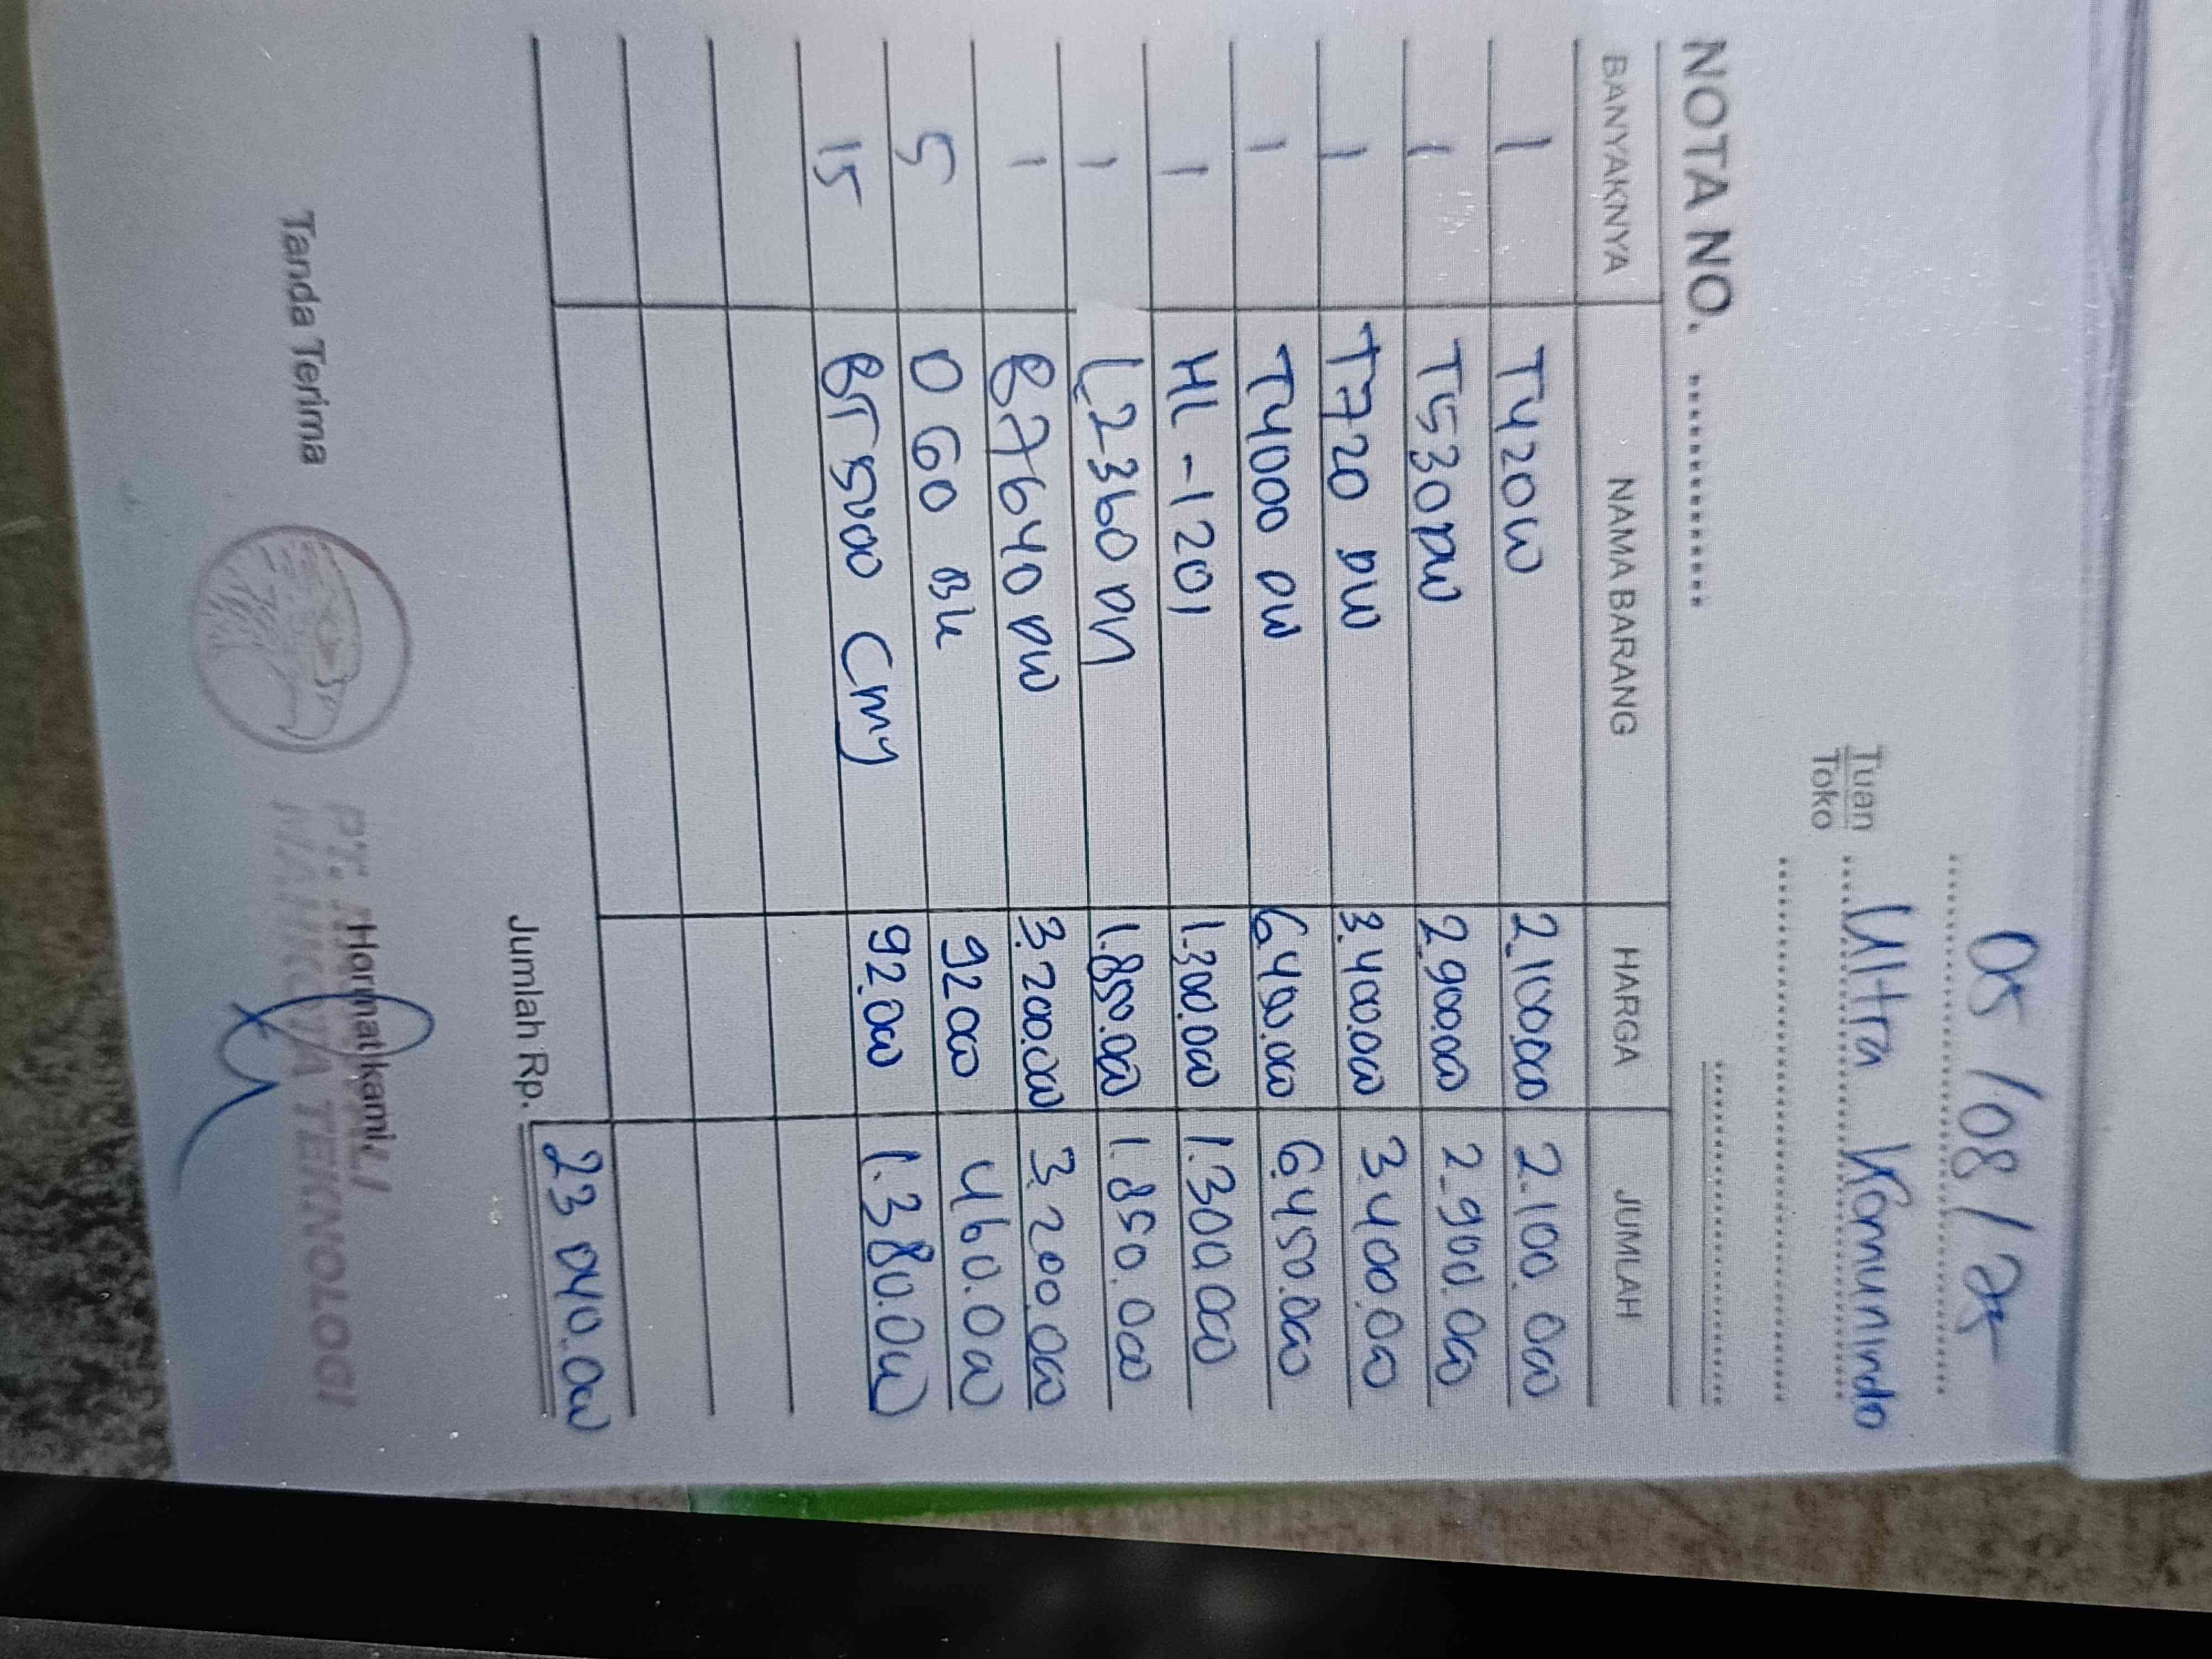 05/08/25
Tuan Ultra Komunindo
Toko
NOTA NO.
BANYAKNYA NAMA BARANG HARGA JUMLAH
1 T420W 2.100.000 2.100.000
1 T530DW 2.900.000 2.900.000
1 T720 DW 3.400.000 3.400.000
1 T4000 DW 6.450.000 6.450.000
1 HL-1201 1.300.000 1.300.000
1 L2360 DN 1.850.000 1.850.000
1 B7640 DW 3.200.000 3.200.000
5 D60 BK 92.000 460.000
15 BT5000 CMY 92.000 1.380.000
Jumlah Rp. 23.040.000
Tanda Terima Hormat kami,
PT.
MAHKOTA TEKNOLOGI